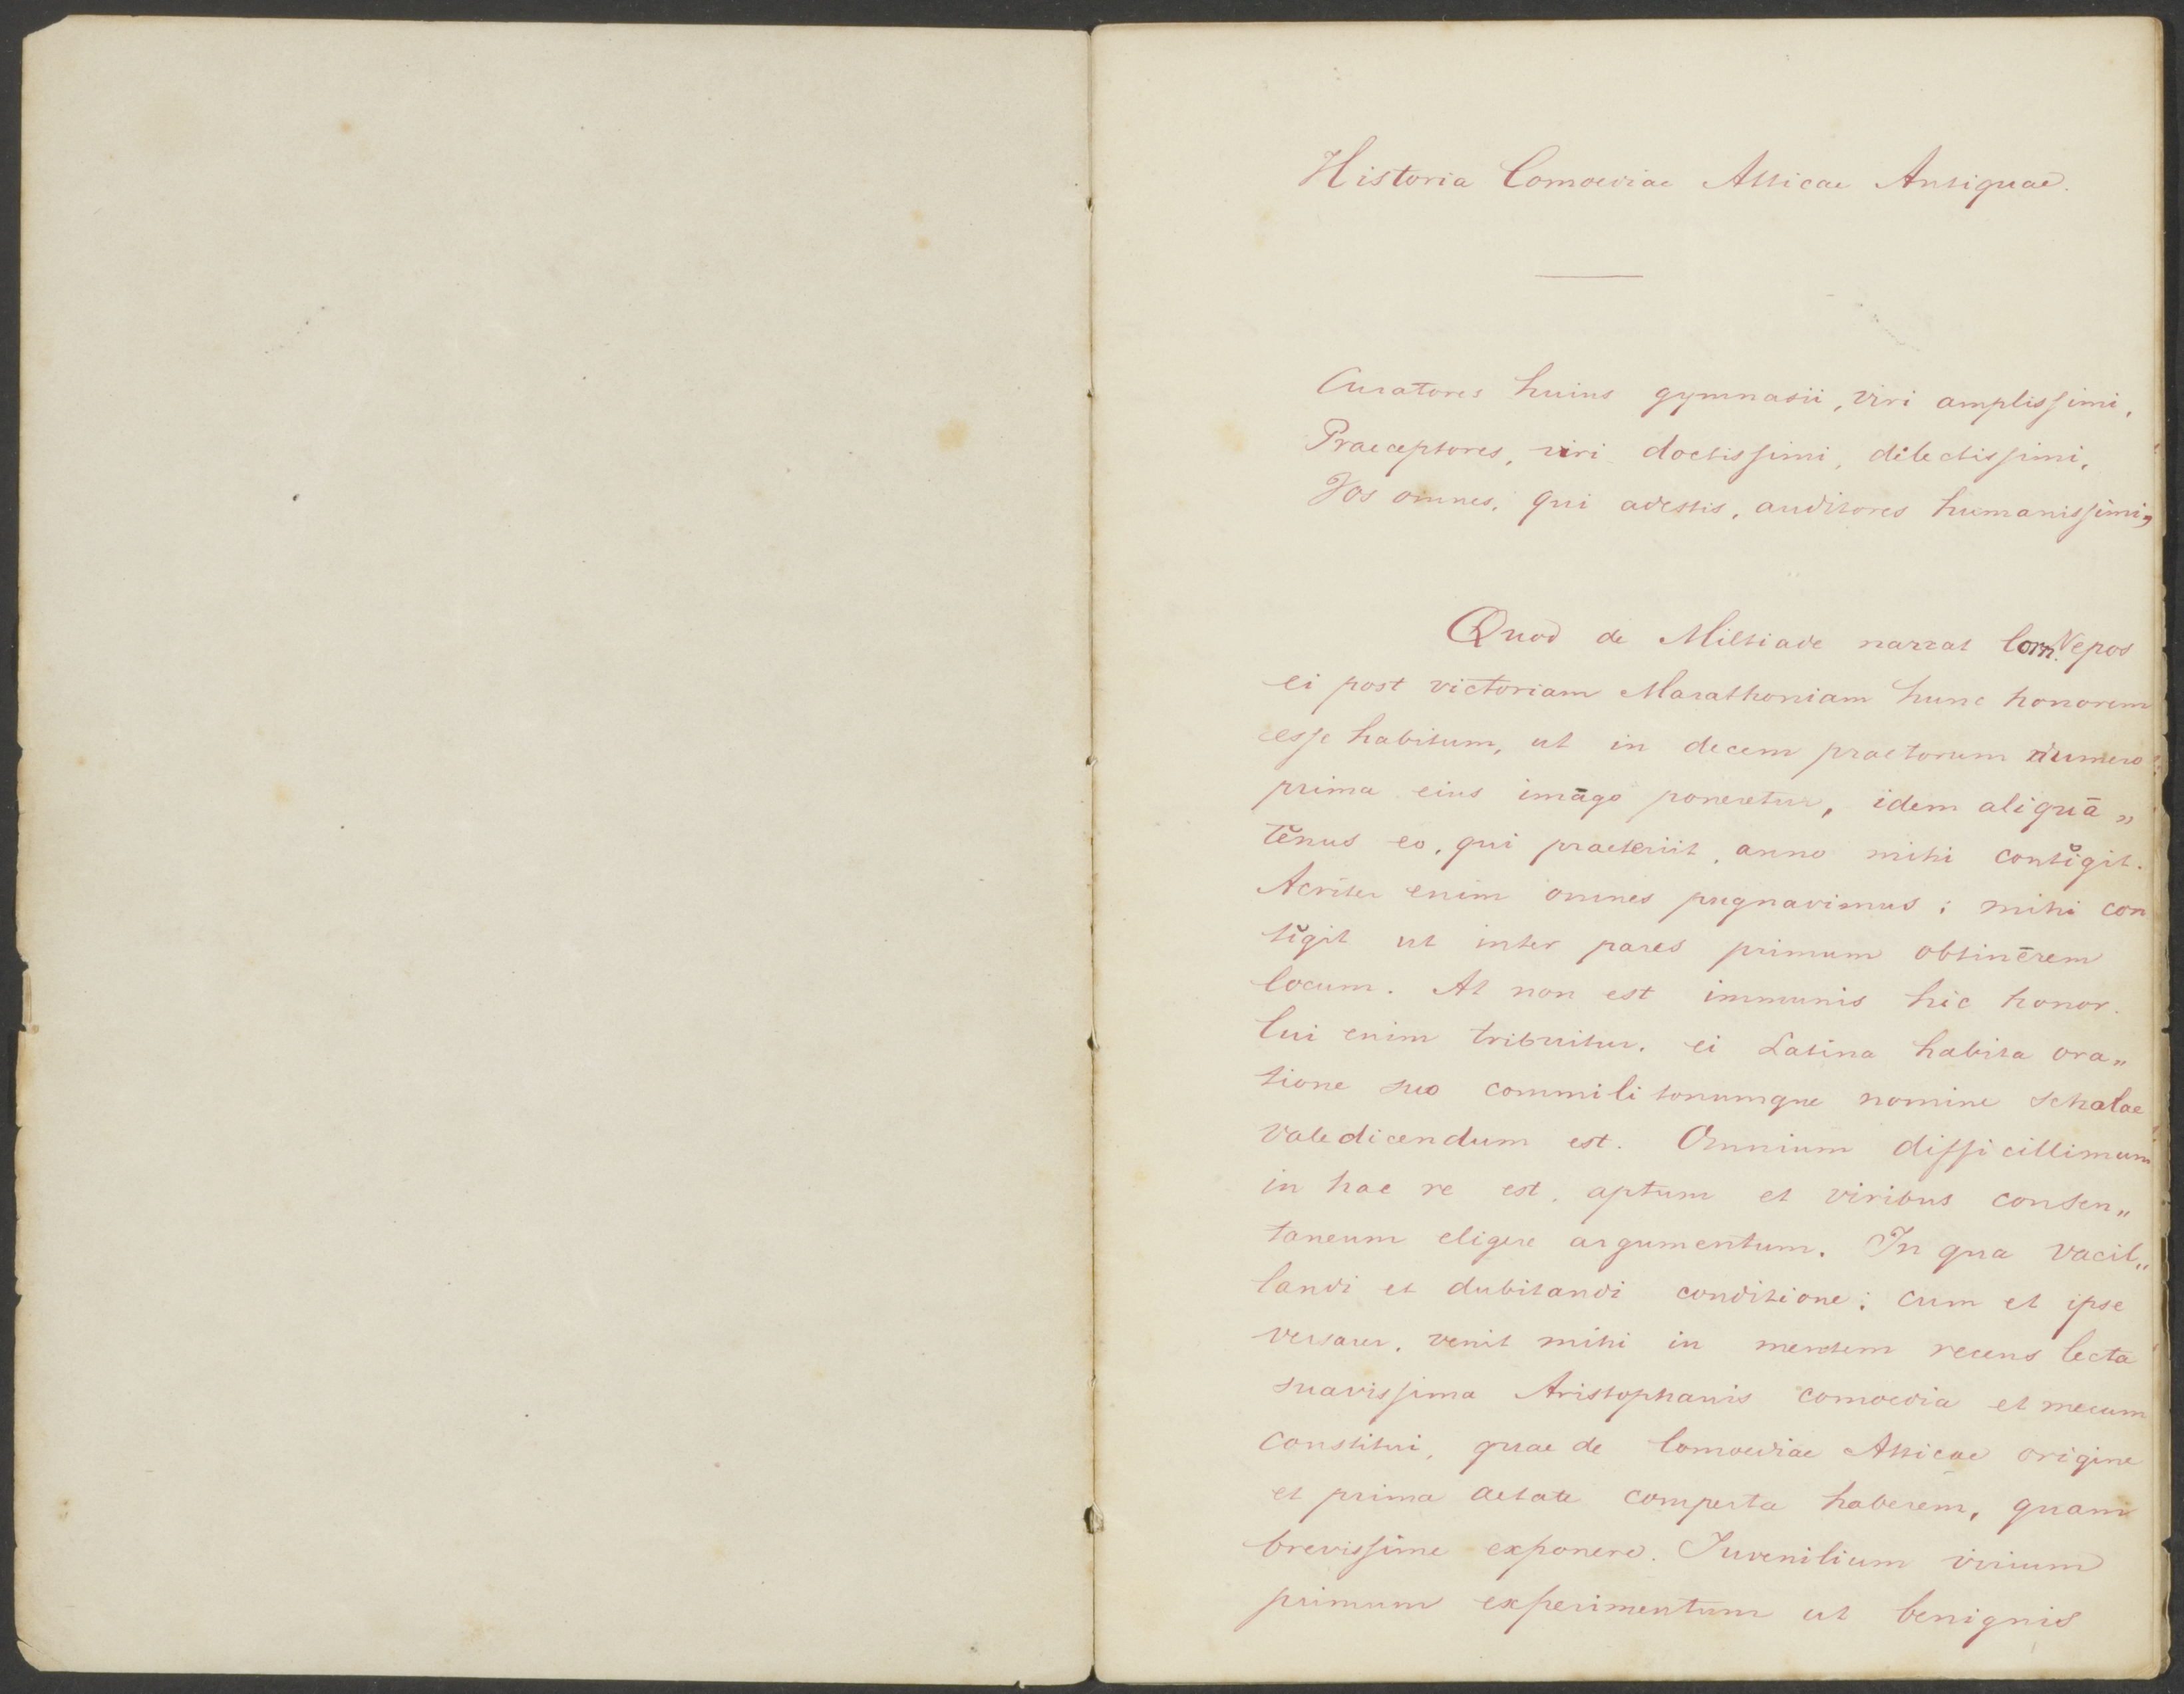 Historia Comoediae Atticae Antiquae.
Curatores huius gymnasii, viri amplissimi,
Praeceptores, viri doctissimi, dilectissimi,
Vos omnes, qui adestis, auditores humanissimi,
Quod de Miltiade narrat Corn. Nepos
ei post victoriam Marathoniam hunc honorem
esse habitum, ut in decem praetorum numero
prima eius imāgo poneretur, idem aliquā„
tĕnus eo, qui praeteriit, anno mihi contĭgit.
Acrĭter enim omnes pugnavimus; mihi con
tĭgit ut inter pares primum obtinērem
locum. At non est immunis hic honor.
Cui enim tribuitur, ei Latina habita ora„
tione suo commilitonumque nomine scholae
valedicendum est. Omnium difficillimum
in hac re est, aptum et viribus consen„
taneum eligere argumentum. In qua vacil„
landi et dubitandi conditione; cum et ipse
versarer, venit mihi in mentem recens lecta
suavissima Aristophanis comoedia et mecum
constitui, quae de Comoediae Atticae origine
et prima aetate comperta haberem, quam
brevissime exponere. Iuvenilium virium
primum experimentum ut benignis